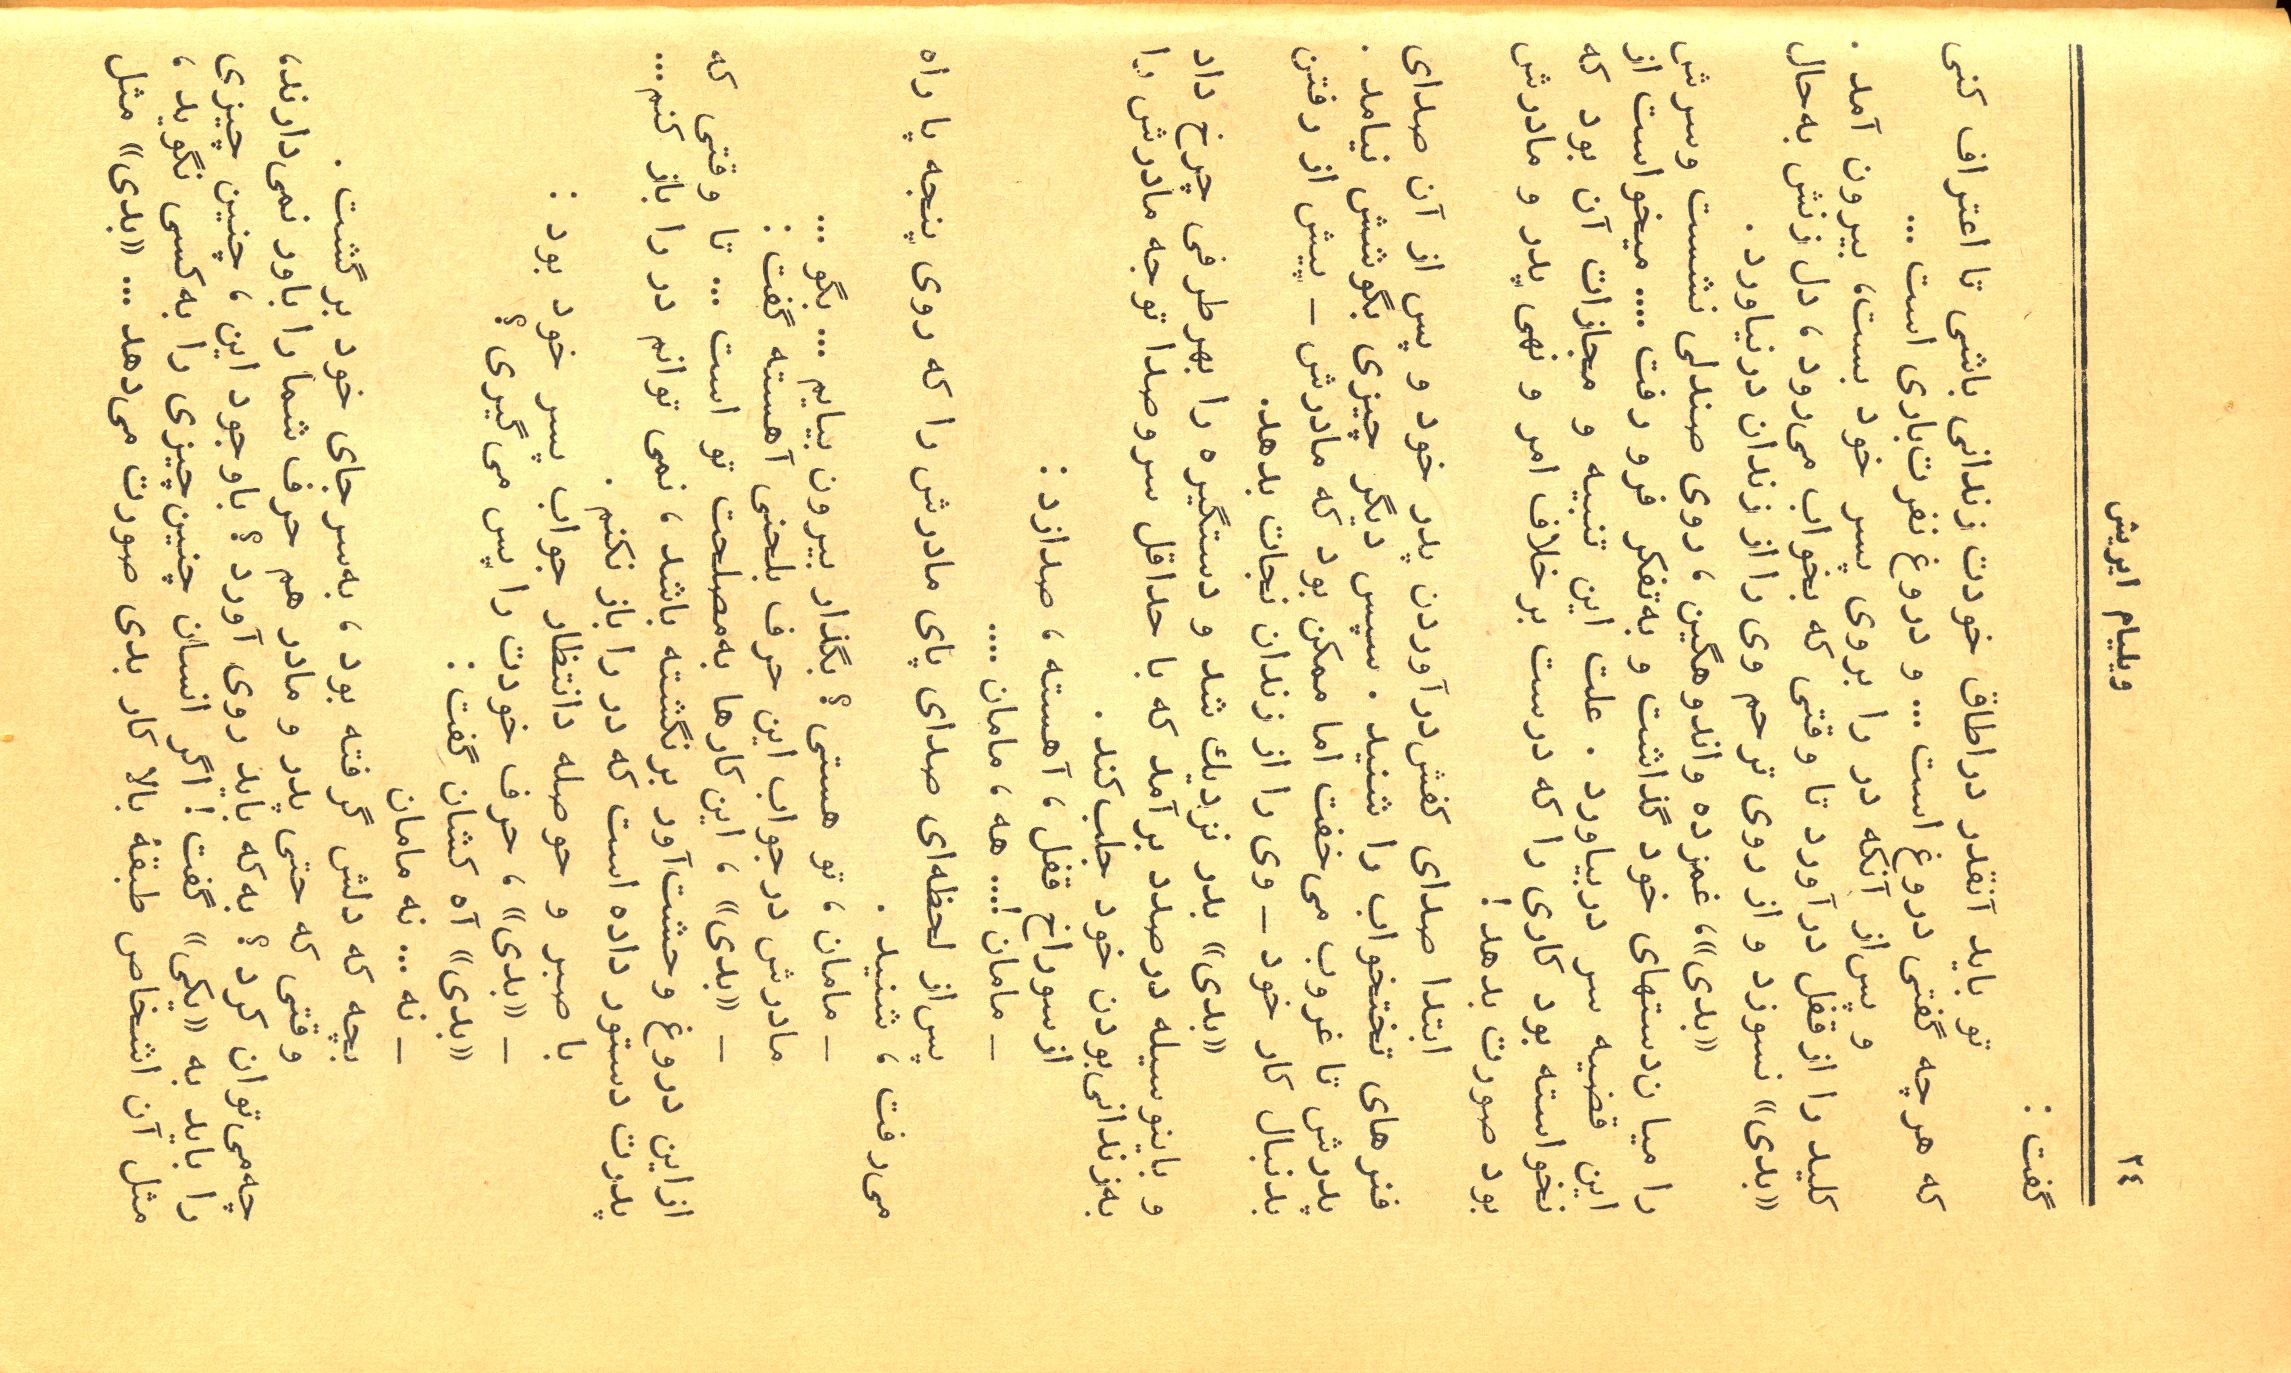 ۲٤
ویلیام ایریش
گفت :
تو باید آنقدر دراطاق خودت زندانی باشی تا اعتراف کنی
که هرچه گفتی دروغ است ... و دروغ نفرت‌باری است ...
و پس‌از آنکه در را بروی پسر خود بست، بیرون آمد .
کلید را ازقفل درآورد تا وقتی که بخواب می‌رود ، دل زنش به‌حال
«بدی» نسوزد و از روی ترحم وی را از زندان درنیاورد .
«بدی»، غمزده واندوهگین ، روی صندلی نشست وسرش
را میان‌دستهای خود گذاشت و به‌تفکر فرو رفت .... میخواست از
این قضیه سر دربیاورد . علت این تنبیه و مجازات آن بود که
نخواسته بود کاری را که درست برخلاف امر و نهی پدر و مادرش
بود صورت بدهد !
ابتدا صدای کفش‌درآوردن پدر خود و پس از آن صدای
فنرهای تختخواب را شنید . سپس دیگر چیزی بگوشش نیامد .
پدرش تا غروب می‌خفت اما ممکن بود که مادرش – پیش از رفتن
بدنبال کار خود – وی را از زندان نجات بدهد.
«بدی» بدر نزدیك شد و دستگیره را بهرطرفی چرخ داد
و باینوسیله درصدد برآمد که با حداقل سروصدا توجه مادرش را
به‌زندانی‌بودن خود جلب‌کند .
ازسوراخ قفل ، آهسته ، صدازد :
– مامان!... هه ، مامان ....
پس‌از لحظه‌ای صدای پای مادرش را که روی پنجه پا راه
می‌رفت ، شنید .
– مامان ، تو هستی ؟ بگذار بیرون بیایم ... بگو ...
مادرش درجواب این حرف بلحنی آهسته گفت :
– «بدی» ، این‌کارها به‌مصلحت تو است ... تا وقتی که
ازاین دروغ وحشت‌آور برنگشته باشد ، نمی توانم در را باز کنم...
پدرت دستور داده است که در را باز نکنم .
با صبر و حوصله دانتظار جواب پسر خود بود :
– «بدی» ، حرف خودت را پس می‌گیری ؟
«بدی» آه کشان گفت :
– نه ... نه مامان
بچه که دلش گرفته بود ، به‌سرجای خود برگشت .
وقتی که حتی پدر و مادر هم حرف شما را باور نمی‌دارند،
چه‌می‌توان کرد ؟ به‌که باید روی آورد ؟ باوجود این ، چنین چیزی
را باید به «یکی» گفت ! اگر انسان چنین‌چیزی را به‌کسی نگوید ،
مثل آن اشخاص طبقهٔ بالا کار بدی صورت می‌دهد ... «بدی» مثل